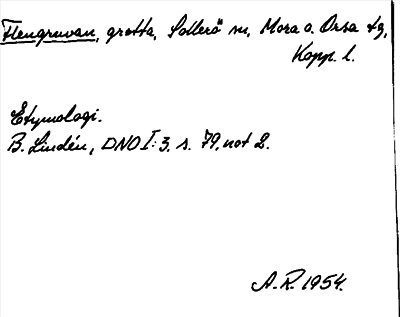 Flengruvan, grotta, Sollerö sn, Mora o. Orsa tg,
Kopp. l.
Etymologi.
B. Lindén, DNO I:3, s. 79, not 2.
A.R. 1954.